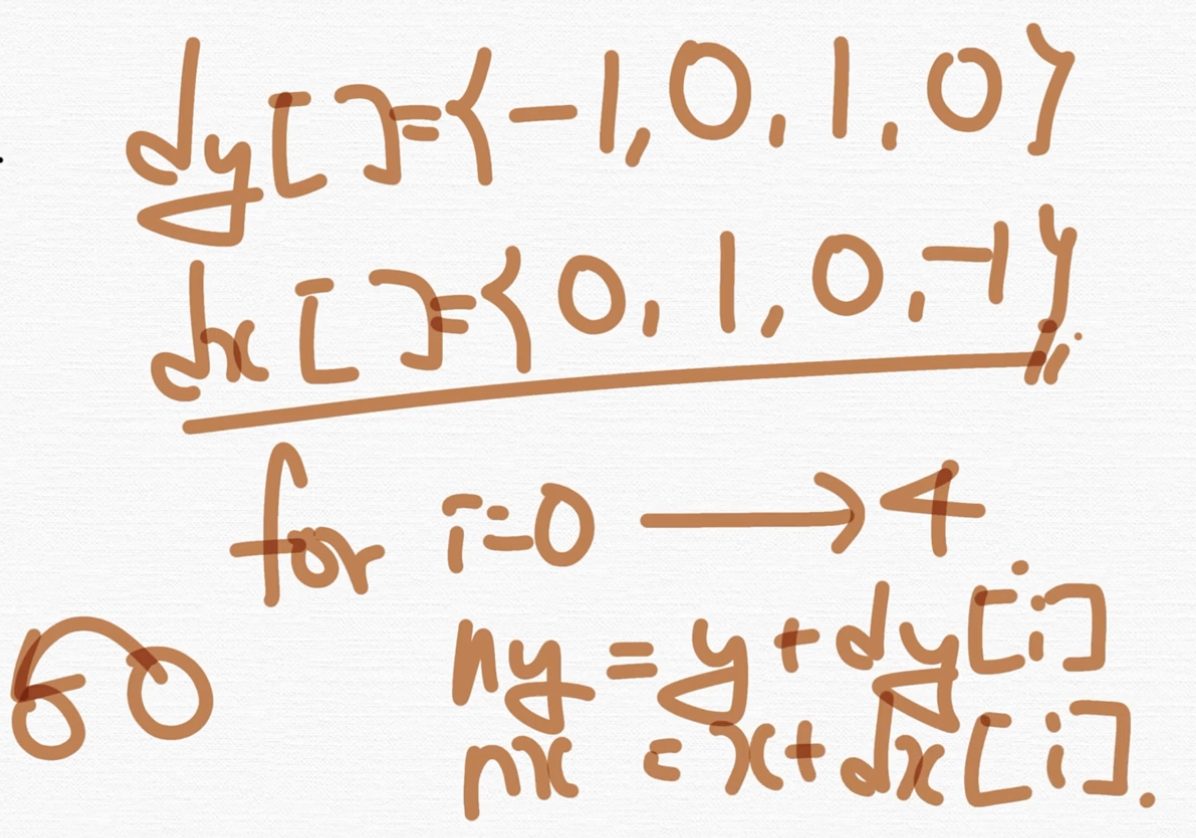 dy[]={-1,0,1,0}
dx[]={0,1,0,-1}
for i=0 → 4
ny=y+dy[i]
nx=x+dx[i].